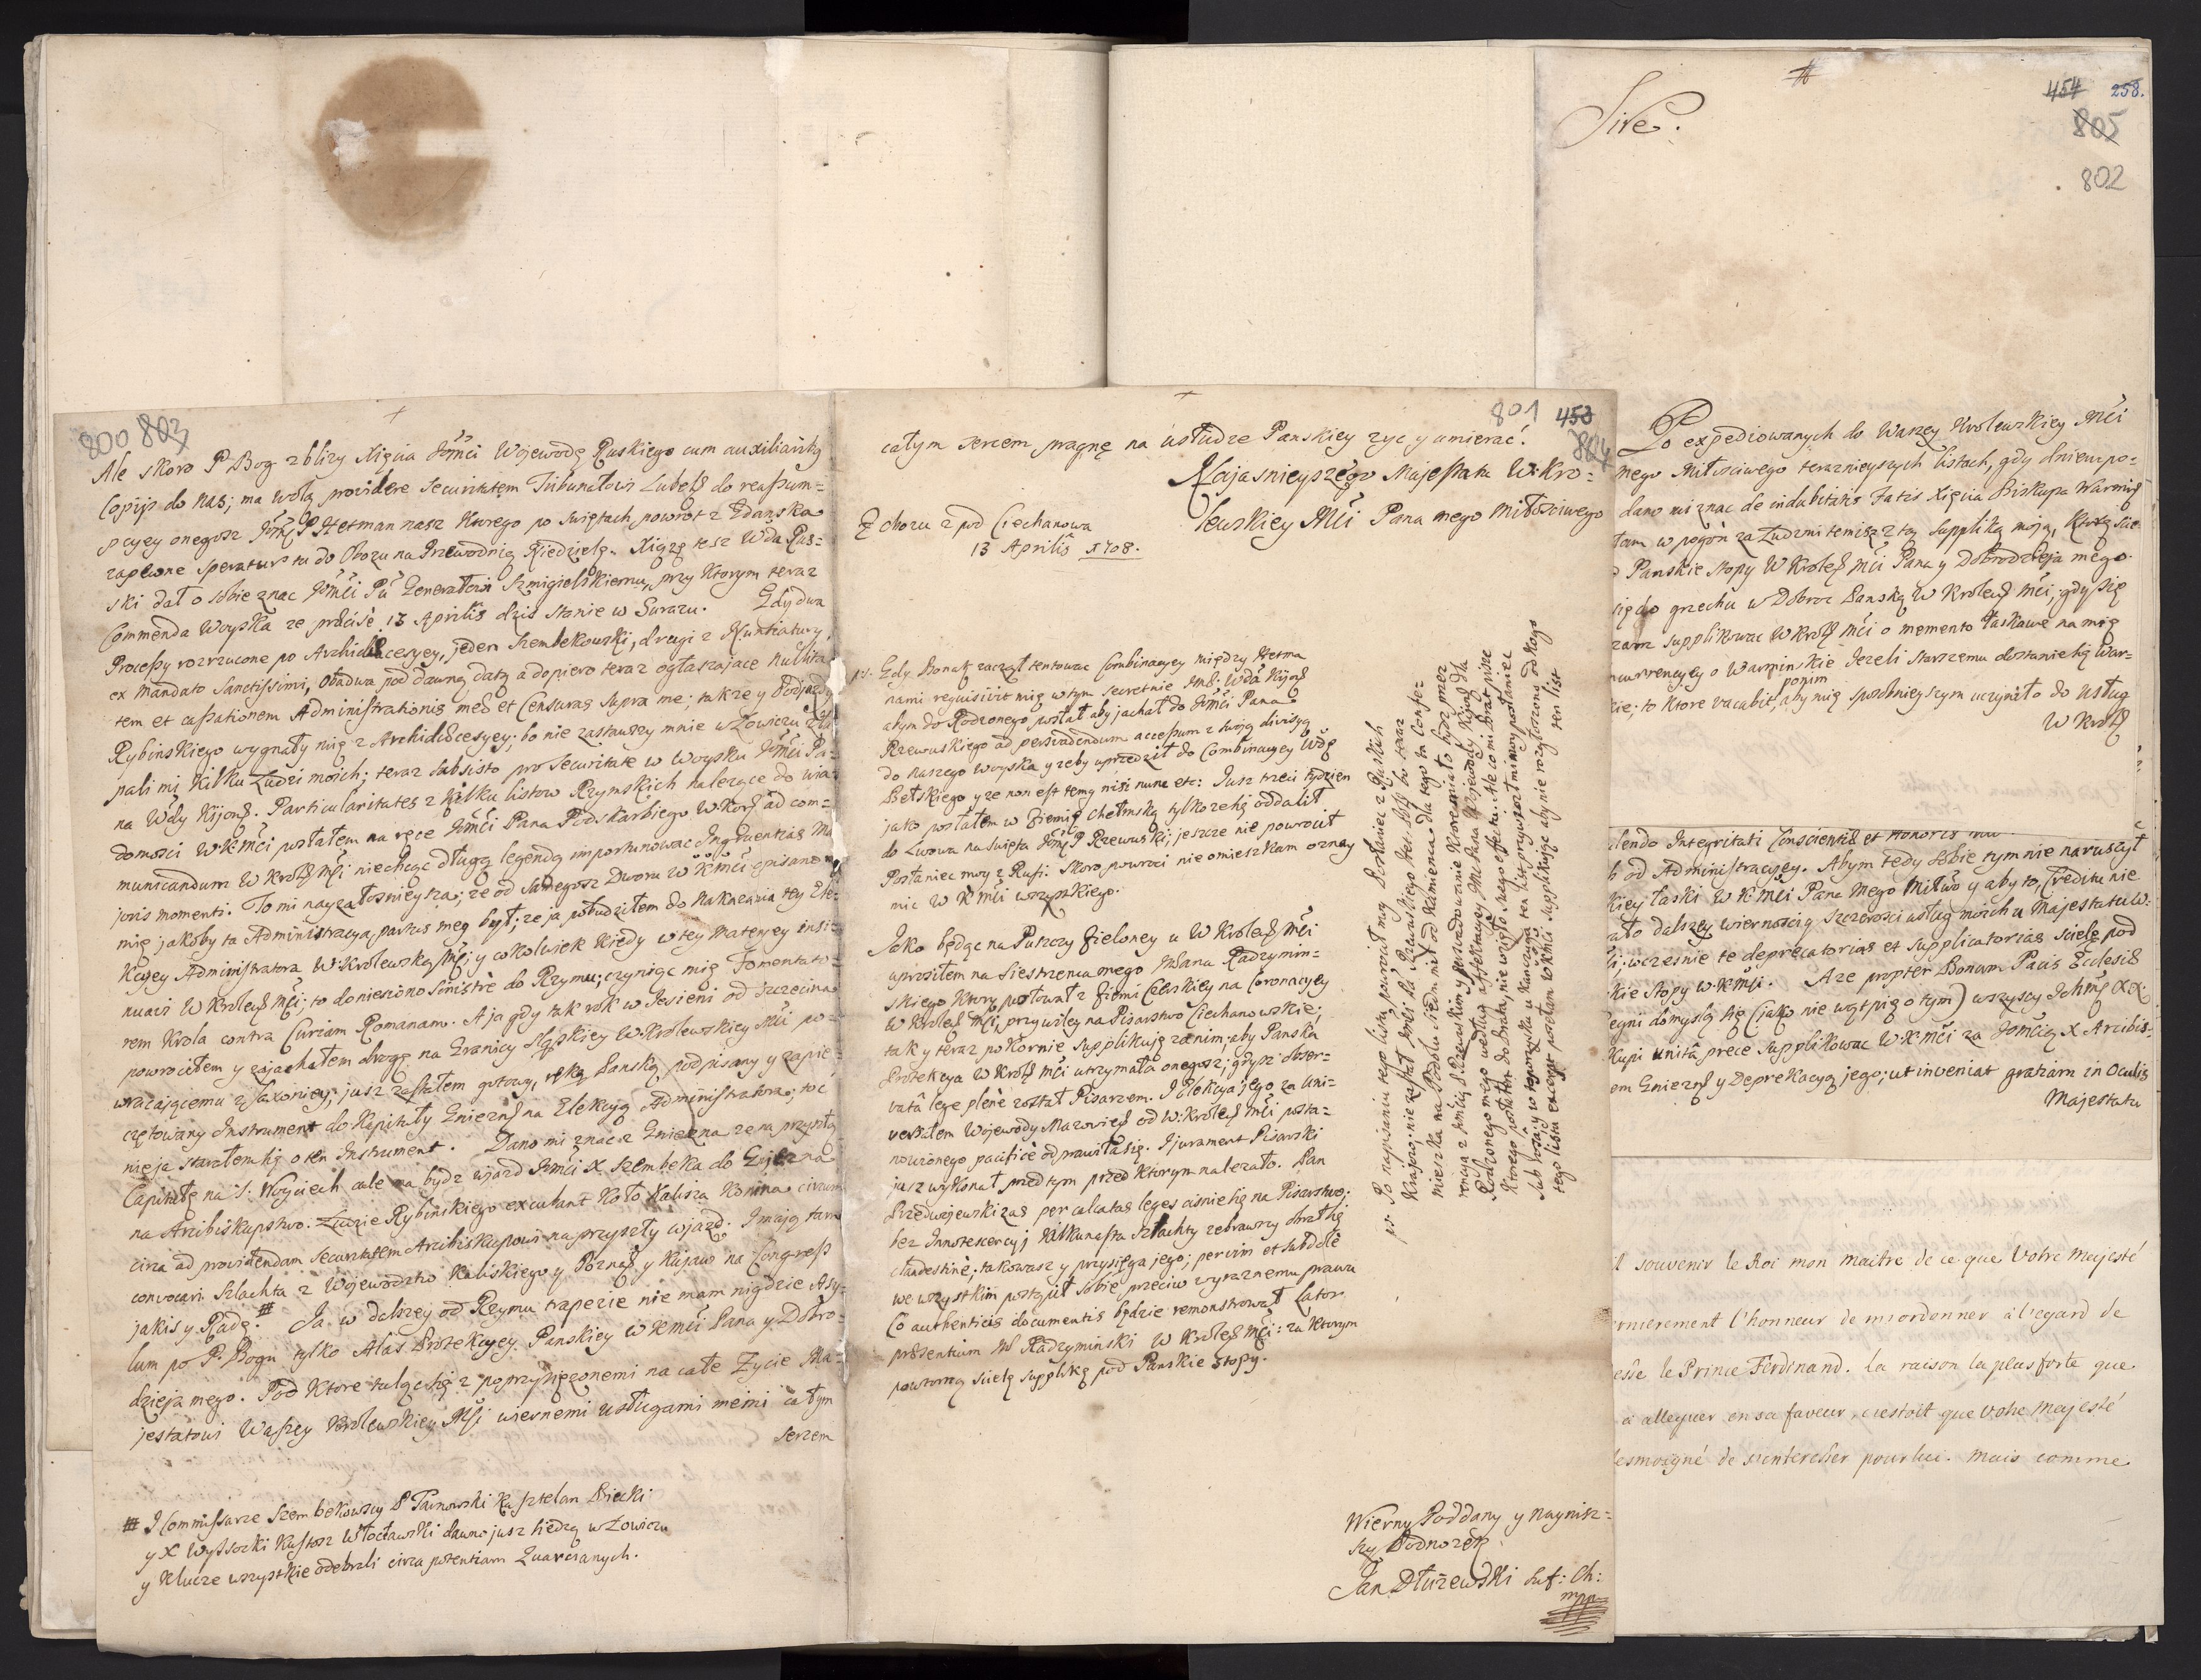 800 803
Ale skoro P. Bog zblizy Xięcia Jmći Wojewodę Ruskiego cum auxiliaribꝫ
Copijs do nas; ma wolą providere Securitatem Tribunałowi Lubelſ do reassum=
pcyey onegosz Jmć P Hetman nasz ktorego po swiętach powrot z Gdanska
zapewne speratur tu do Obozu na Przewodnią Niedzielę. Xiąże tesz Wda Rus=
ski dał o sobie znac Jmći Pu Generałowi Szmigielskiemu, przy ktorym teraz
Commenda Woyska ze 13 Aprilis dzis stanie w Surazu. Gdy dwa
Processy rozrzucone po Archidiæcesyey, jeden Szembekowski, drugi z Nuntiatury,
ex mandato Sanctissimi, obadwa pod dawną datą a dopiero teraz ogłaszające nullita=
tem et cassationem Administrationis meæ et Censuras supra me; takze y Podjazdy
Rybinskiego wygnały mię z Archidiæcesyey; bo nie zastawszy mnie w Łowiczu
pali mi kilku Ludzi moich; teraz subsisto pro Securitate w Woysku Jmći Pa=
na Wdy Kijowſ. Particularitates z kilku listow Rzymskich nalezące do wia=
domosci W K Mći posłałem na ręce Jmći Pana Podskarbiego W. Korſ ad com=
municandum W Krolſ Mći niechcąc długą legendą importunowac Ingruentias Ma=
joris momenti. To mi nayzałosnieysza; ze od samegosz Dworu W K Mći opisano
mię jakoby ta Administracya, partus meg był; ze ja pobudziłem do nakazania tey Ele=
kcyey Administratora W. Krolewską Mć; y cokolwiek kiedy w tey materyey insi=
nuavi W Krolewſ Mći; to doniesiono sinistrè do Rzymu; czyniąc mię Fomentato=
rem Krola contra Curiam Romanam. A ja gdy tak rok w Jesieni od Szczecina
powrociłem y zajachałem drogę na Granicy Sląskiey W. Krolewskiey Mći po=
wracającemu z Saxoniey; jusz zastałem gotowy, ręką Panską podpisany y zapie=
czętowany Instrument do Kapituły Gnieznſ na Elekcyą Administratora; toć
nie ja starałem się o ten Instrument. Dano mi znac z Gniezna ze na przyszłą
Capitułę na S. Woyciech cale ma bydz wjazd Jmći X Szembeka do Gniezna
na Arcibiskupstwo. Ludzie Rybinskiego excubant Koło Kalisza Konina circum
circa ad providendam Securitatem Arcibiskupowi na przyszły wjazd. I mają tam
convocari Szlachta z Wojewodztw Kaliskiego y Poznaſ y Kujaw na Congress
jakis y Radę. # Ja w dalszey od Rzymu trapezie nie mam nigdzie Asy=
lum po P. Bogu tylko Alas Protekcyey Panskiey W K Mći Pana y Dobro=
dzieja mego. Pod ktore tulącsię z poprzysięzonemi na całe Zycie Ma=
jestatowi Waszey Krolewskiey Mći wiernemi usługami memi całym
sercem
# I Commissarze Szembekowscy P Tarnowski Kasztelan Biecki
y X Wyssocki Kustosz Włocławski dawno jusz siedzą w Łowiczu
y Klucze wszystkie odebrali circa potentiam Quarcianych.
801 453
804
całym sercem pragnę na usłudze Panskiey zyc y umierać.
Najasnieyszego Majestatu W. Kro=
lewskiey Mći Pana mego Miłosciwego
Z obozu z pod Ciechanowa
13 Aprilis 1708.
ps. Gdy Bonak zaczął tentowac Combinacyey między Hetma
nami requisivit mię w tym secretnie Jmć. Wda Kijowſ
abym do Rodzonego posłał aby jachał do Jmći Pana
Rzewuskiego ad persvadendum accessum z swoją divisyą
do naszego woyska y zeby uprzedził do Combinacyey Wdę
Bełskiego y ze non est temp nisi nunc etc: Jusz trzeci tydzien
jako posłałem w Ziemię Chełmską tylko ze się oddalił
do Lwowa na swięta Jmć P Rzewuski; jeszcze nie powrocił
Posłaniec moy z Rusi. Skoro powroci nie omieszkam oznay
mic W K Mći wszystkiego.
Jako będąc na Puszczy Zieloney u W Krolewſ Mći
uprosiłem na Siestrzenca mego JMPana Radzymin=
skiego ktory posłował z Ziemi Cierskiey na Coronacyey
W Krolewſ Mći, przywiley na Pisarstwo Ciechanowskie;
tak y teraz pokornie supplikuję za nim; aby Panska
Protekcya W Krolſ Mći utrzymała onegosz; gdysz obser=
vatâ lege plenè został Pisarzem. I Elekcya jego za Uni=
versałem Wojewody Mazowieſ od W: Krolewſ Mći posta=
nowionego pacificè odprawiła się. I jurament Pisarski
jusz wykonał przed tym przed ktorym nalezało. Pan
Przedwojewski zas per calcatas leges cisnie się na Pisarstwo;
bez Innotescencyi kilkunastu Szlachty zebrawszy obrał się
clandestinè; takowasz y przysięga jego; per vim et subdolè
we wszystkim postąpił sobie przeciw wyraznemu prawu
Co authenticis documentis będzie remonstrował Lator
præsentium JM Radzyminski W Krolewſ Mći: za ktorym
powtorną scielę supplikę pod Panskie stopy.
ps. Po napisaniu tego listu powrocił moy Posłaniec z Ruskich
Krajow; nie zastał Jmći Pa Rzewuskiego bo teraz
mieszka na Podolu siedm mil od Kamienca dla tego ta Confe=
rencya z Jmćią P. Rzewuskim y persvadowanie ktore miało bydz przez
Rodzonego mego według affektacyey JM Pana Wojewody Kijowſ dla
ktorego posłałem do Brata; nie wzięło swego effectu. Ale co mi Brat pisze
sub rosa; y w tym ten list przywiozł mi moy posłaniec
tego listu posełam W K Mći supplikując aby nie rozgłoszono od kogo
ten list
Wierny Poddany y naynisz=
szy Podnozek
Jan Dłużewski Suf: Ch:
mpp
#
454 258.
805
802
Sire.
Po expediowanych do Waszey Krolewskiey Mći
mego Miłosciwego teraznieyszych listach, gdy dniem po=
dano mi znac de indubitatis Fatis Xięcia Biskupa Warmiſ
łam w pogoń za Ludzmi temisz z tą suppliką moją, ktorą scie
Panskie stopy W Krolewſ Mći Pana y Dobrodzieja mego.
się do grzechu w Dobroc Panską W Krolewſ Mći, gdy się
zam supplikowac W Krolſ Mći o memento łaskawe na mię
currencyey o Warminskie Jezeli starszemu dostanie się War=
kie; to ktore vacabit ponim, aby mię sposobnieyszym uczyniło do Usług
W Krolſ
lendo Integritati Conscientiæ et Honoris
od Administracyey. Abym tedy sobie tym nie naruszył
kiey łaski W K Mći Pana mego Miłwo y aby to, Creditu nie
rało dalszey wiernoscią szczerosci usług moich u Majestatu W.
i; wczesnie te deprecatorias et supplicatorias scielę pod
kie stopy W. K Mći. A ze propter Bonum Pacis Ecclesiæ
egni domyslą się (jako nie wątpię o tym) wszyscy Ichmć XX
kupi unitâ prece supplikowac W. K Mći za Jmćią X. Arcibis=
em Gnieznſ y Deprekacyą jego; ut inveniat gratiam in Oculis
Majestatu
souvenir le Roi mon maitre de ce que Votre Majesté
rnierement l'honneur de m'ordonner à l'egard de
esse le Prince Ferdinand. la raison la plus forte que
a alleguer en sa faveur, c'estoit que Votre Majesté
esmoigné de s'interesser pour lui. Mais comme